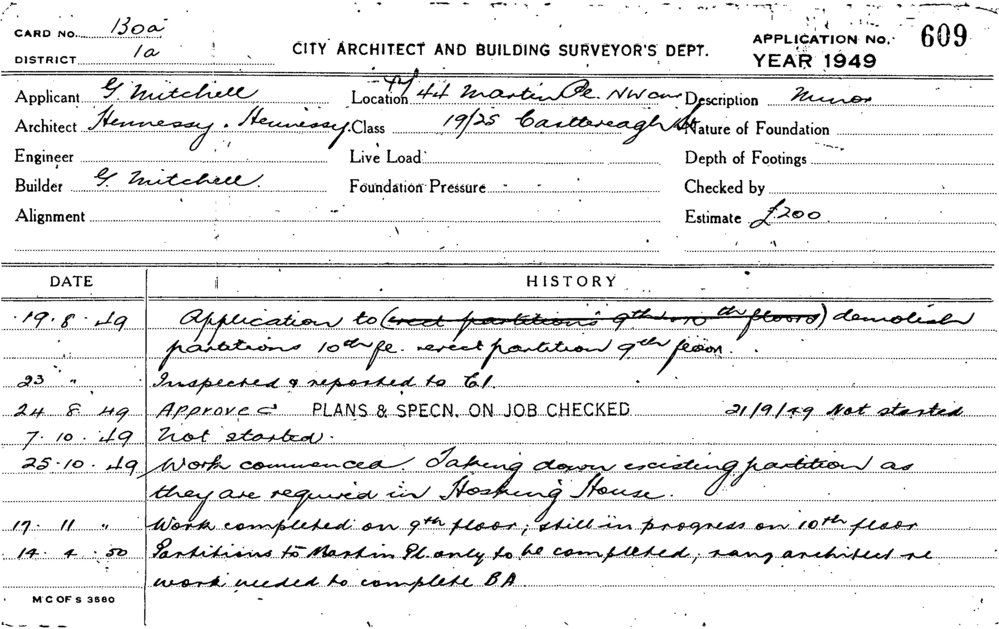 CARD NO. 130a
DISTRICT 1a
CITY ARCHITECT AND BUILDING SURVEYOR'S DEPT.
APPLICATION NO. 609
YEAR 1949
Applicant G Mitchell Location 44 Martin Pl. NW cnr Description Minor
Architect Hennessy . Hennessy. Class 19/25 Castlereagh St Nature of Foundation
Engineer Live Load Depth of Footings
Builder G. Mitchell. Foundation Pressure Checked by
Alignment Estimate £200
DATE HISTORY
19.8.49 Application to (erect partitions 9th 10th floors) demolish
partitions 10th fl. erect partition 9th floor.
23 " Inspected & reported to C.I.
24 8 49 Approved PLANS & SPECN. ON JOB CHECKED 21/9/49 Not started
7.10.49 Not started.
25.10.49 Work commenced. Taking down existing partition as
they are required in Hosking House.
17. 11 " Work completed on 9th floor; still in progress on 10th floor
14. 4. 50 Partitions to Martin Pl only to be completed; rang architect re
work needed to complete BA.
M C OF S 3560